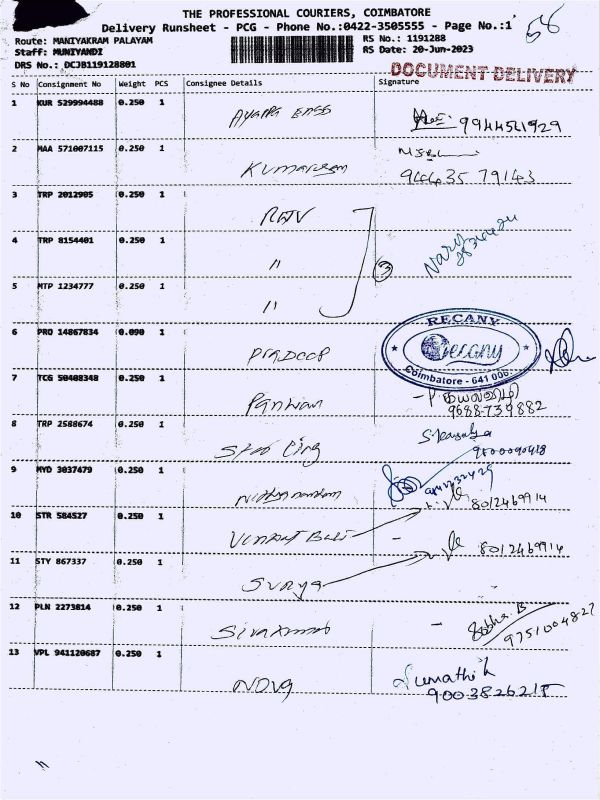 THE PROFESSIONAL COURIERS, COIMBATORE
Delivery Runsheet - PCG - Phone No.:0422-3505555 - Page No.:1
58
Route: MANIYAKRAM PALAYAM
RS No.: 1191288
Staff: MUNIYANDI
RS Date: 20-Jun-2023
DRS No.: DCJB119128801
DOCUMENT DELIVERY
S No Consignment No Weight PCS Consignee Details Signature
1 KUR 529994488 0.250 1
9944541929
2 MAA 571007115 0.250 1 Kumaresan
94435 79143
3 TRP 2012905 0.250 1
4 TRP 8154401 0.250 1 "
3
5 MTP 1234777 0.250 1 "
6 PRO 14867834 0.090 1 Pradeep
RECANY
Recany
Coimbatore - 641 006
7 TCG 50408348 0.250 1
9688739882
8 TRP 2588674 0.250 1
9 MYD 3037479 0.250 1
8012469914
10 STR 584527 0.250 1 -
11 STY 867337 0.250 1 Surya
8012469914
12 PLN 2273814 0.250 1 Sivakumar -
9751004827
13 VPL 941120687 0.250 1 Nova
Sumathi K
9003826215